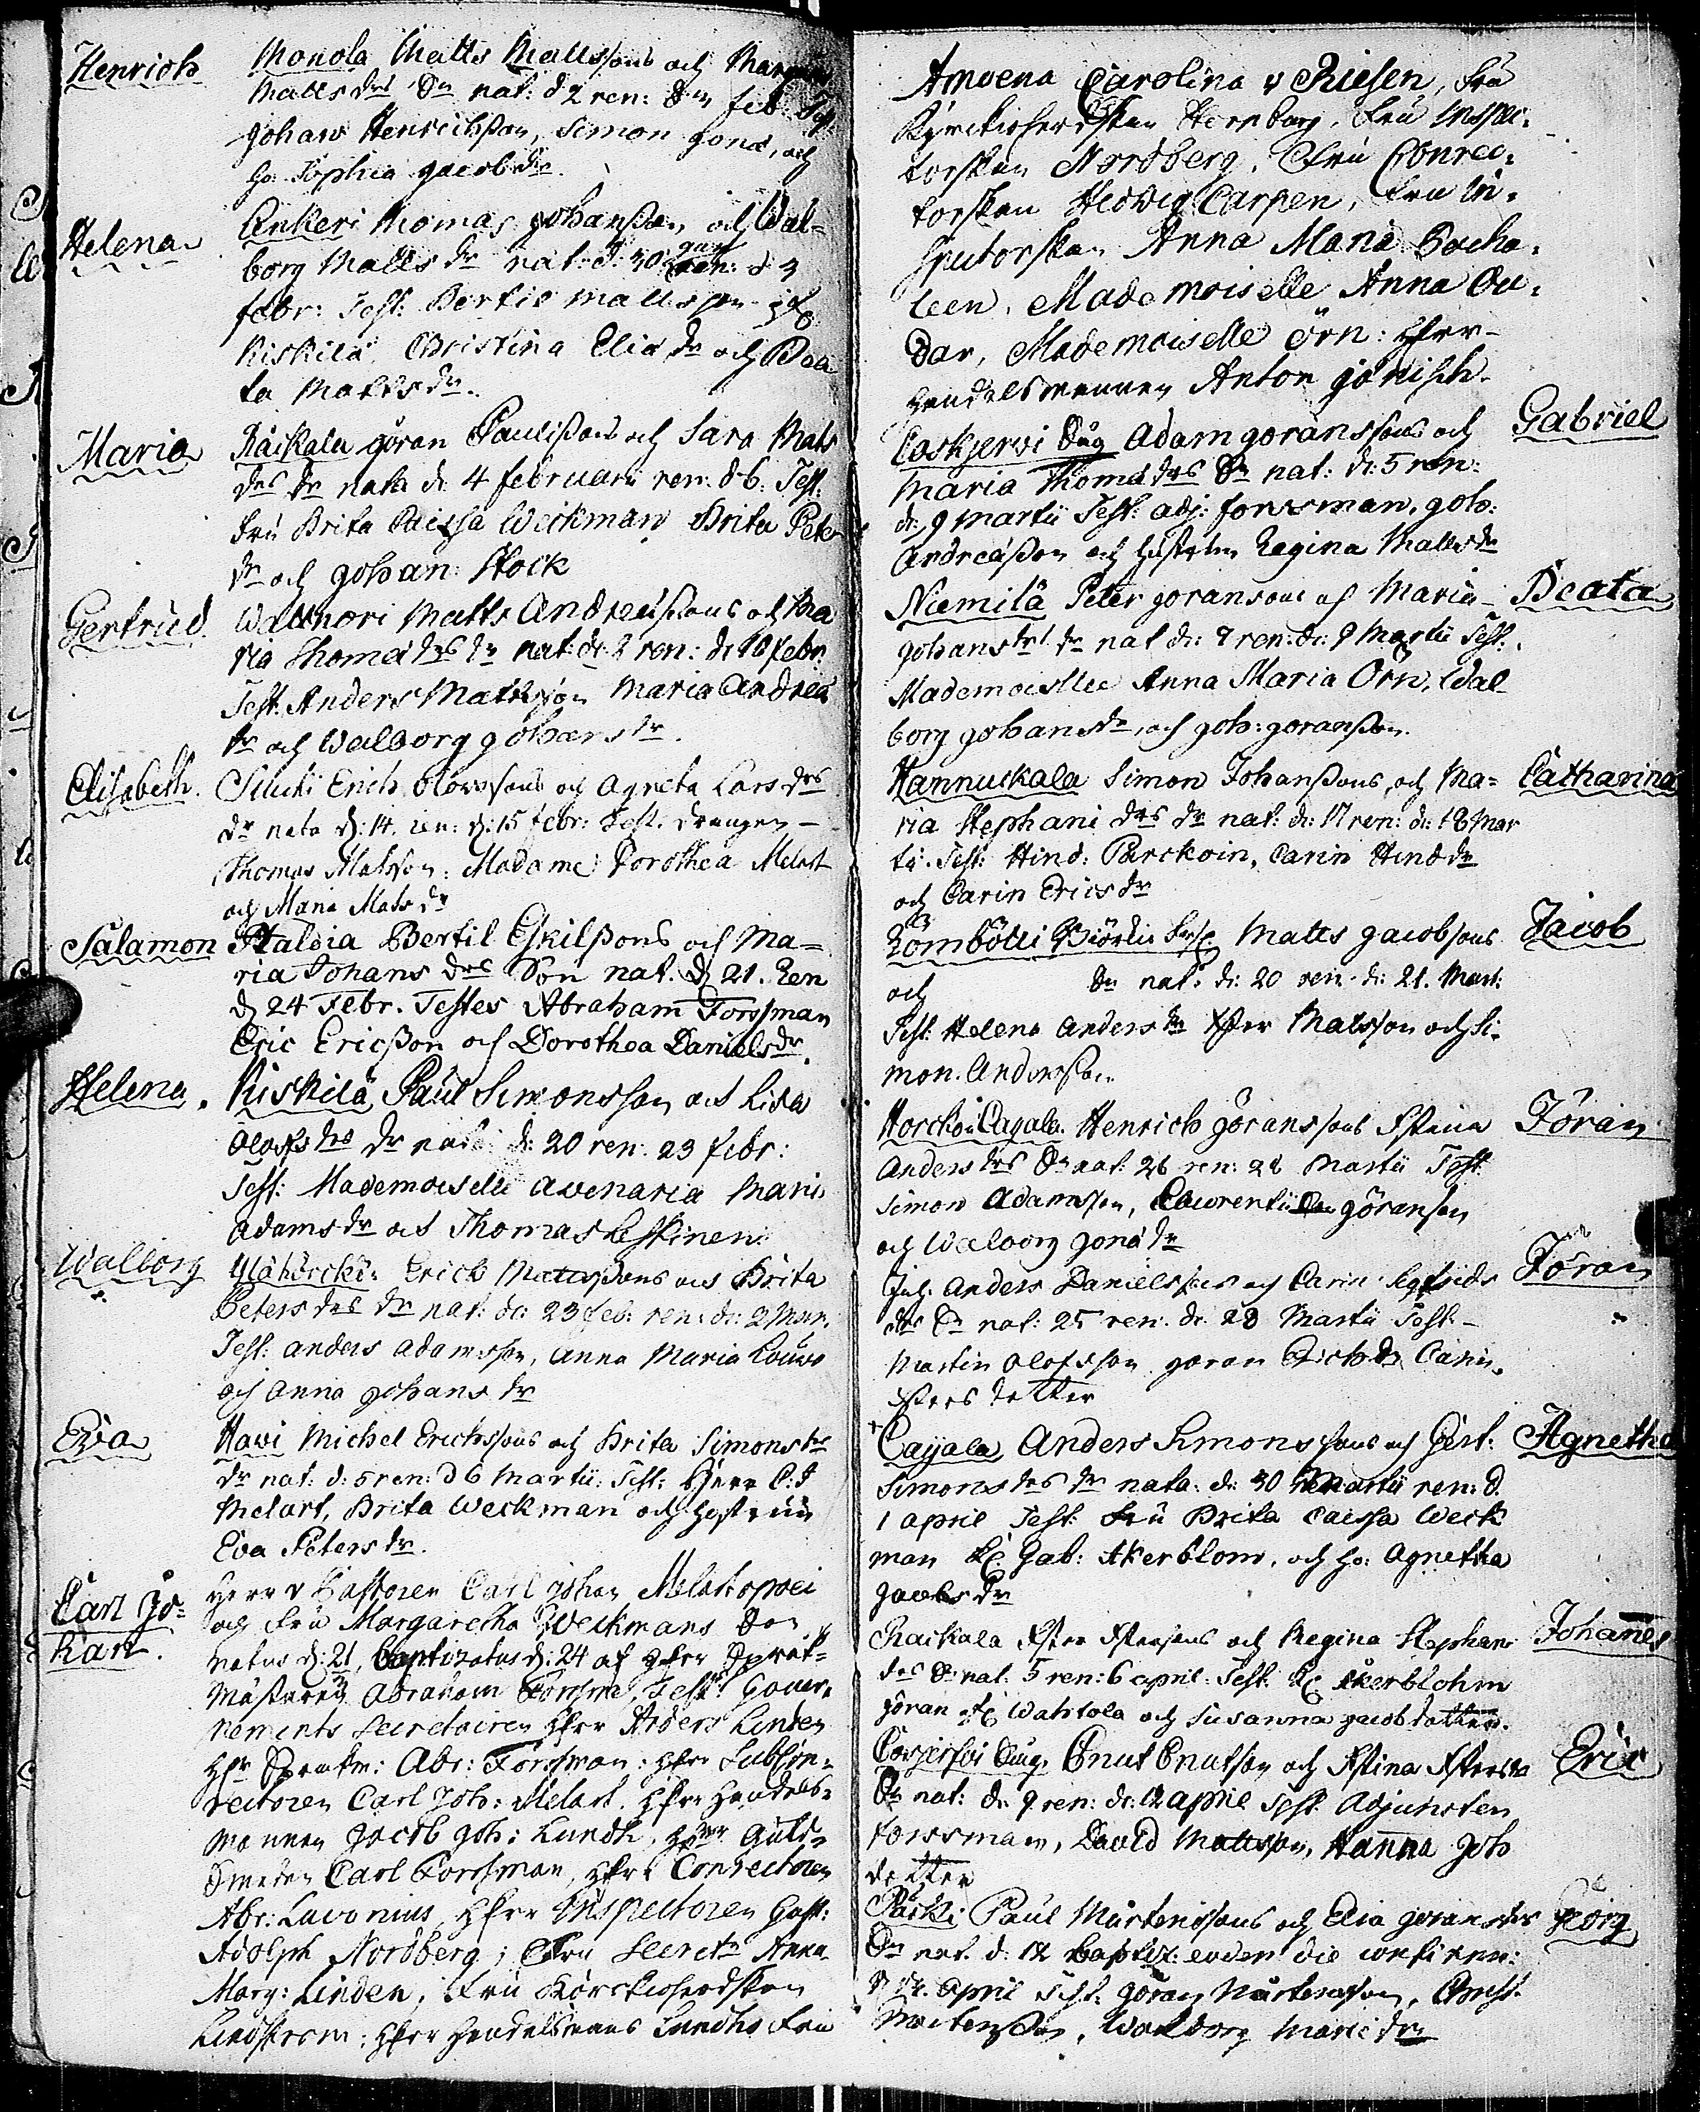 Henrich
Monola Matts Mattssons och Margreta
Matts drs Sn nat: d 2 ren: d feb: Test
Johan Henrichsson, Simon Jonæ, och
h: Sophia Jacobdr
Helena
Enkeri Thomas Johansson, och Wal-
borg Matts dr nat: d: 30 jan ren: d 3
febr: Test: Bertil Mattsson
Kiskilä Christina Eliæ dr och Bea
ta Matts dr.
Maria
Räickala Göran Paulissons och Sara Mats
drs dr nata d: 4 februarii ren: d 6. Test:
Fru Brita Caissa Weckman, Brita Peter
dr och Johan: Stock
Gertrud.
Wattnori Matts Andreæssons och Ma
ria Thomæ drs dr nat: d: 2 ren: d: 10 febr:
Test: Anders Matsson Maria Andreæ
dr och Walborg Johans dr.
Elisabeth.
Erich Olofssons och Agneta Lars drs
dr nata d: 14. ren: d: 15 febr: Test. Drengen
Thomas Matsson: Madame Dorothea Melart
och Maria Mats dr
Salamon
Haloia Bertil Eskilssons och Ma-
ria Johans drs Son nat. d 21. Ren
d 24 Febr. Testes Abraham Forssman
Eric Ericsson och Dorothea Daniels dr.
Helena.
Kiskilä Paul Simonsson och Lisa
Olofs drs dr nat: d: 20 ren: 23 febr:
Test: Mademoiselle Avenaria Maria
Adams dr och Thomas Leskinen
Walborg
Ylähörckö: Erick Matssons och Brita
Peters drs dr nat: d: 23 feb: ren: d: 2 Mar.
Test: Anders Adamsson, Anna Maria Louwo
och Anna Johans dr
Eva
Hawi Michel Erichssons och Brita Simons drs
dr nat: d: 5 ren: d 6 Martii: Test: Herr C: J
Melart, Brita Weckman och hustrun
Eva Peters dr.
Carl Jo-
han.
Herr Pastoren Carl Johan Melartopoei
och Fru Margaretha Weckmans Son
natus d: 21, Baptizatus d: 24 af Herr Prost-
Mästaren Abraham Forssman, Test: Gouver-
nements Secretairen Herr Anders Linden
Hr: Abr: Forssman: Herr Subcon-
rectoren Carl Joh: Melart, Herr Handels-
mannen Jacob Joh: Lundh, Herr Guld-
Smeden Carl Forssman, Herr Conrectoren
Abr: Lavonius, Herr Inspectoren Gust:
Adolph Nordberg; Fru Secret: Anna
Marg: Linden, Fru Körckioherdskan
Lindstrom: Herr Handelsmans Lundhs Fru
Amoena Carolina v Riesen, Fru
Kyrckioherdskan Hernborg, Fru Inspec-
torskan Nordberg, Fru Conrec-
torskan Hedwig Carpen, Fru In-
Anna Maria Bocha-
leen, Mademoiselle Anna Ou-
dar, Mademoiselle Örn: Herr
Handelsmannen Anton Jänisch.
Gabriel
Caskjerwi Adam Göranssons och
Maria Thomæ drs Sn nat: d: 5 ren:
d: 9 Martii Test: Adj: Forssman, Joh:
Andreæsson och hustrun Regina Matts dr
Beata
Niemilä Peter Göransons och Maria
Johans drs dr nat d: 7 ren: d: 9 Martii Test:
Mademoisellee Anna Maria Örn, Wal-
borg Johans dr, och Joh: Göransson.
Catharina
Hannuckala Simon Johanssons, och Ma-
ria Stephani drs dr nat: d: 17 ren: d: 18 Mar
tii. Test: Hind: Parckoin, Carin Hind dr
och Carin Erics dr
Jacob
Matts Jacobsons
och Sn nat: d: 20 ren: d: 21. Mart:
Test: Helena Anders dr Peter Matsson och Si-
mon Andersson
Jöran
Horckoi Cayala Henrich Göranssons Stina
Anders drs Sn nat: 26 ren: 28 Martii Test:
Simon Adamsson, Laurentii Göranson
och Walborg Jonæ dr
Jöran
Anders Danielssons och Carin Sigfrids
drs Sn nat: 25 ren: d: 28 Martii Test:
Martin Olofsson Göran Erichs Carin
Peters dotter
Agnetha
Cayala Anders Simonssons och Gert:
Simons drs dr nata: d: 30 Martii ren: d.
1 april Test: Fru Brita Caissa Weck
man Gab: Åkerblom, och h: Agnetha
Jacobs dr
Johanes
Rackala Peter Petersons och Regina Stephani
drs Sn nat: 5 ren: 6 april. Test: Åkerblohm
Göran Wahtola och Susanna Jacobdotter.
Eric
Cnut Cnutson och Stina Peters dr
Sn nat: d: 9 ren: d: 12 april Test: Adjuncten
Forssman, David Mattsson, Hanna Joh
dotter
Georg
Pärki Paul Mårtenssons och Elia Görans drs
Sn nat. d: 12 baptiz: eodem die confirm:
d 14. april Test: Göran Mårtensson, Christ.
Mårtensson, Walborg Maric dr